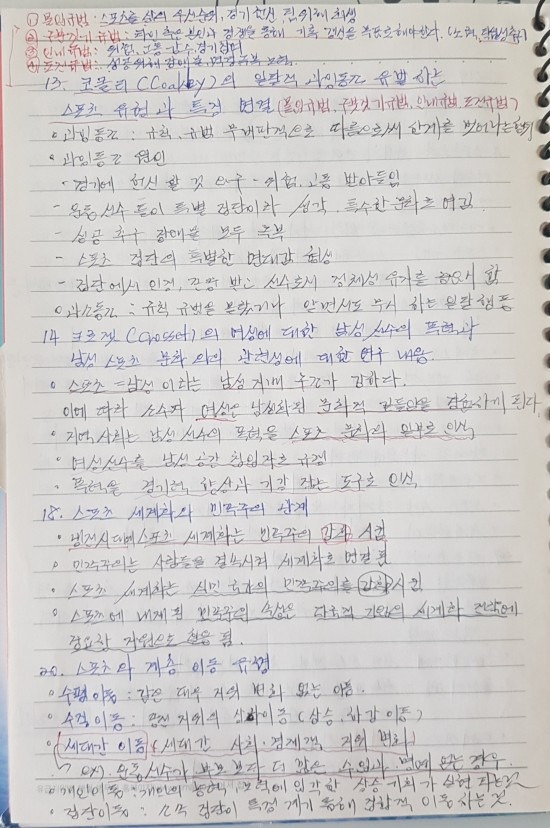 ① 몰입규범 : 스포츠를 삶의 우선순위, 경기 헌신, 팀 위해 희생
② 구분짓기규범 : 타인 혹은 본인과 경쟁을 통해 기록 갱신을 목표로 해야한다.
③ 인내규범 : 위험, 고통 감수 경기 참여
④ 도전규범 : 성공 위해 장애물 역경 극복 노력
13. 코클리 (Coakley)의 일탈적 과잉동조 유발 하는
스포츠 유형과 특징 연결 (몰입규범, 구분짓기규범, 인내규범, 도전규범)
o 과잉동조 : 규칙, 규범 무비판적으로 따름으로써 한계를 벗어나는 행위
o 과잉동조 원인
- 경기에 헌신 할 것 요구 - 위험, 고통 받아들임
- 운동 선수 들이 특별 집단이라 생각, 특수한 문화로 여김
- 성공 추구 장애물 모두 극복
- 스포츠 집단의 특별한 연대감 형성
- 집단에서 인정, 존중 받고 선수로서 정체성 유지를 중요시 함
o 과소동조 : 규칙 규범을 몰랐거나 알면서도 무시 하는 일탈행동
14. 크로젯 (Crosset)의 여성에 대한 남성 선수의 폭력과
남성 스포츠 문화 와의 관련성에 대한 연구 내용.
o 스포츠 = 남성 이라는 남성 지배 논리가 강하다.
이에 따라 소수자 여성은 남성화된 문화적 강요사가 된다.
o 지역사회는 남성 선수의 폭력을 스포츠 문화의 일부로 인식
o 여성선수를 남성 공간 침입자로 규정
o 폭력을 경기력 향상과 기강 잡는 도구로 인식
18. 스포츠 세계화와 민족주의 관계
o 냉전시대에 스포츠 세계화는 민족주의 강화 시킴
o 민족주의는 사람들을 결속시켜 세계화로 연결 됨
o 스포츠 세계화는 식민 국가의 민족주의를 강화 시킴
o 스포츠에 내재 된 민족주의 속성은 다국적 기업의 세계화 전략에
중요한 자원으로 활용 됨.
20. 스포츠와 계층 이동 유형
o 수평이동 : 같은 대우 지위 변화 없는 이동.
o 수직 이동 : 종전 지위의 상하이동 (상승, 하강 이동)
o 세대간 이동 (세대간 사회·경제적 지위 변화)
ex). 운동선수가 부모 보다 더 많은 수입과 명예 얻는 경우
o 개인이동 : 개인의 능력, 노력에 입각한 상승 기회가 실현 되는것
o 집단이동 : 소속 집단이 특정 계기 통해 집합적 이동 하는 것.